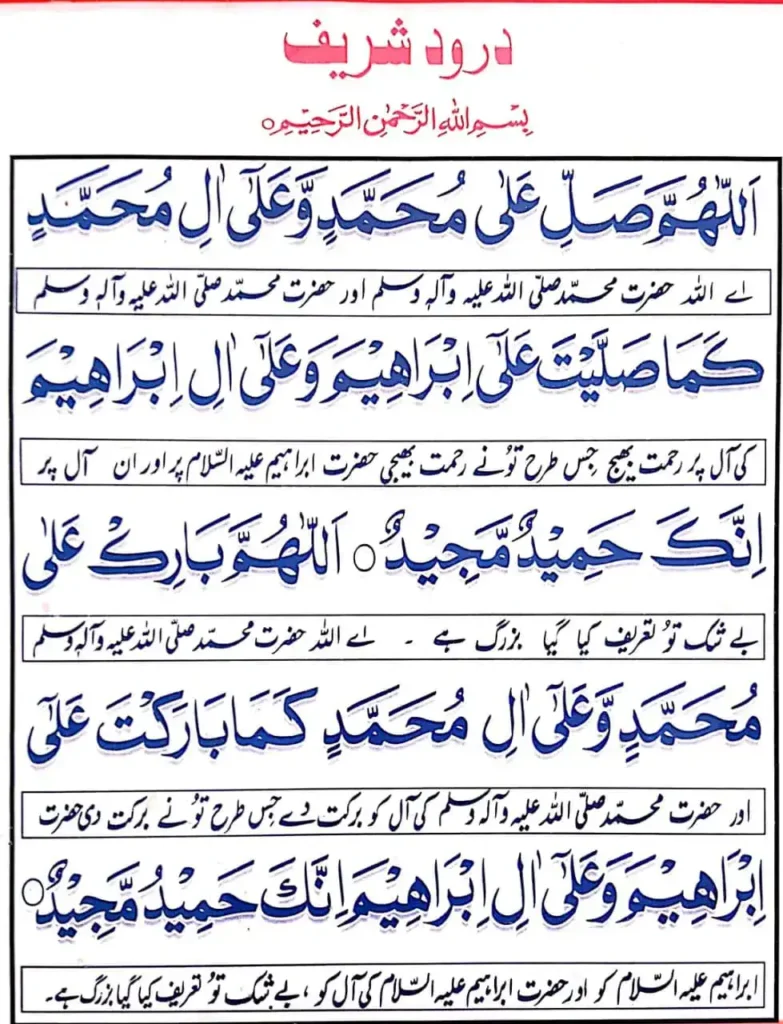 درود شریف
بِسْمِ اللهِ الرَّحْمٰنِ الرَّحِيْمِ○
اَللّٰهُمَّ صَلِّ عَلٰى مُحَمَّدٍ وَّعَلٰٓى اٰلِ مُحَمَّدٍ
اے اللہ حضرت محمد صلّی اللہ علیہ وآلہٖ وسلم اور حضرت محمد صلّی اللہ علیہ وآلہٖ وسلم
كَمَا صَلَّيْتَ عَلٰٓى اِبْرَاهِيْمَ وَعَلٰٓى اٰلِ اِبْرَاهِيْمَ
کی آل پر رحمت بھیج جس طرح تُو نے رحمت بھیجی حضرت ابراہیم علیہ السّلام پر اور ان آل پر
اِنَّكَ حَمِيْدٌ مَّجِيْدٌ○ اَللّٰهُمَّ بَارِكْ عَلٰى
بے شک تُو تعریف کیا گیا بزرگ ہے ۔ اے اللہ حضرت محمد صلّی اللہ علیہ وآلہٖ وسلم
مُحَمَّدٍ وَّعَلٰٓى اٰلِ مُحَمَّدٍ كَمَا بَارَكْتَ عَلٰٓى
اور حضرت محمد صلّی اللہ علیہ وآلہٖ وسلم کی آل کو برکت دے جس طرح تُو نے برکت دی حضرت
اِبْرَاهِيْمَ وَعَلٰٓى اٰلِ اِبْرَاهِيْمَ اِنَّكَ حَمِيْدٌ مَّجِيْدٌ○
ابراہیم علیہ السّلام کو اور حضرت ابراہیم علیہ السّلام کی آل کو ، بے شک تُو تعریف کیا گیا بزرگ ہے۔